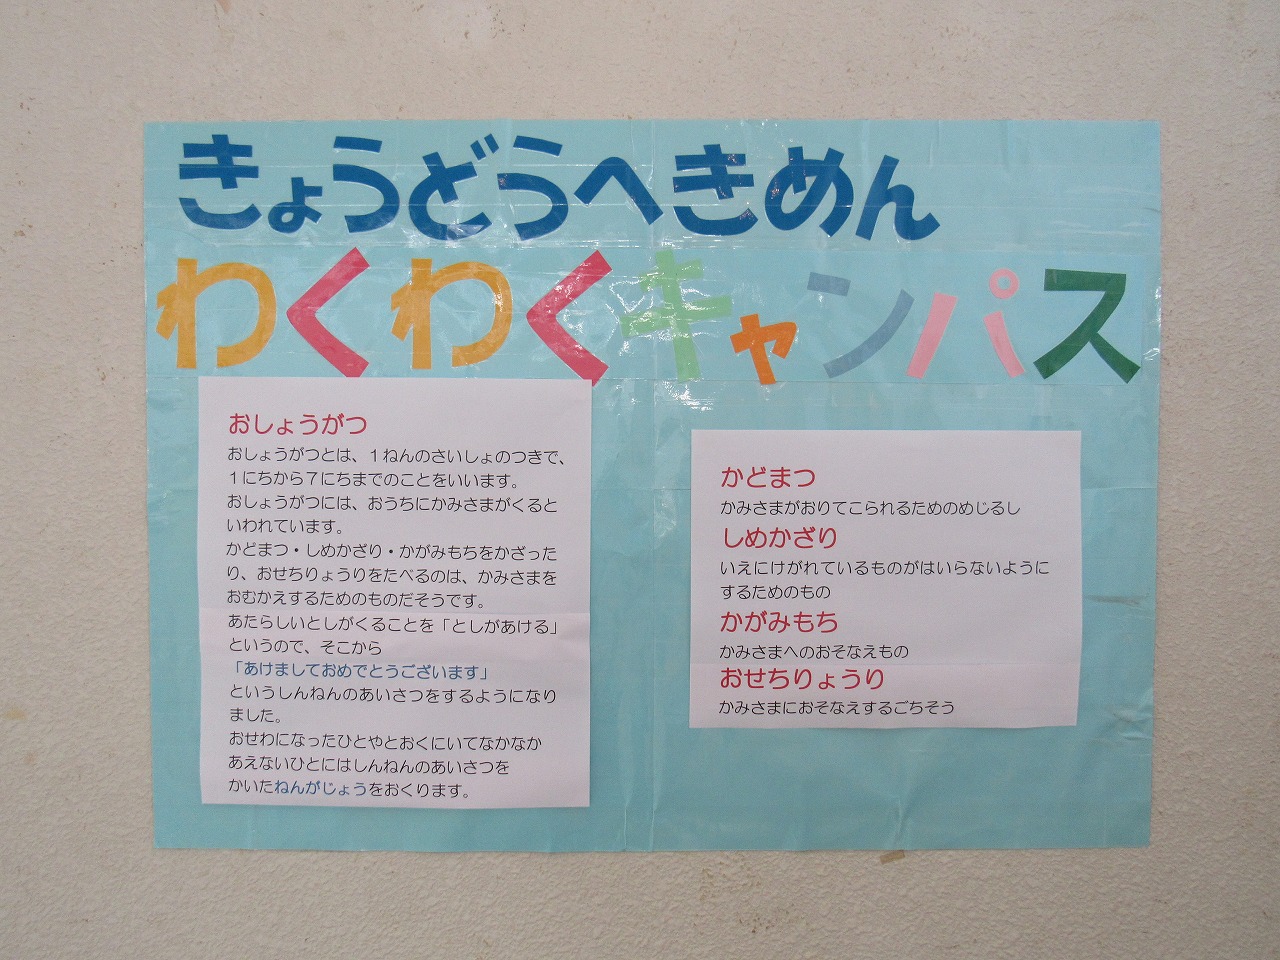 きょうどうへきめん
わくわくキャンパス
おしょうがつ
おしょうがつとは、１ねんのさいしょのつきで、
１にちから７にちまでのことをいいます。
おしょうがつには、おうちにかみさまがくると
いわれています。
かどまつ・しめかざり・かがみもちをかざった
り、おせちりょうりをたべるのは、かみさまを
おむかえするためのものだそうです。
あたらしいとしがくることを「としがあける」
というので、そこから
「あけましておめでとうございます」
というしんねんのあいさつをするようになり
ました。
おせわになったひとやとおくにいてなかなか
あえないひとにはしんねんのあいさつを
かいたねんがじょうをおくります。
かどまつ
かみさまがおりてこられるためのめじるし
しめかざり
いえにけがれているものがはいらないように
するためのもの
かがみもち
かみさまへのおそなえもの
おせちりょうり
かみさまにおそなえするごちそう